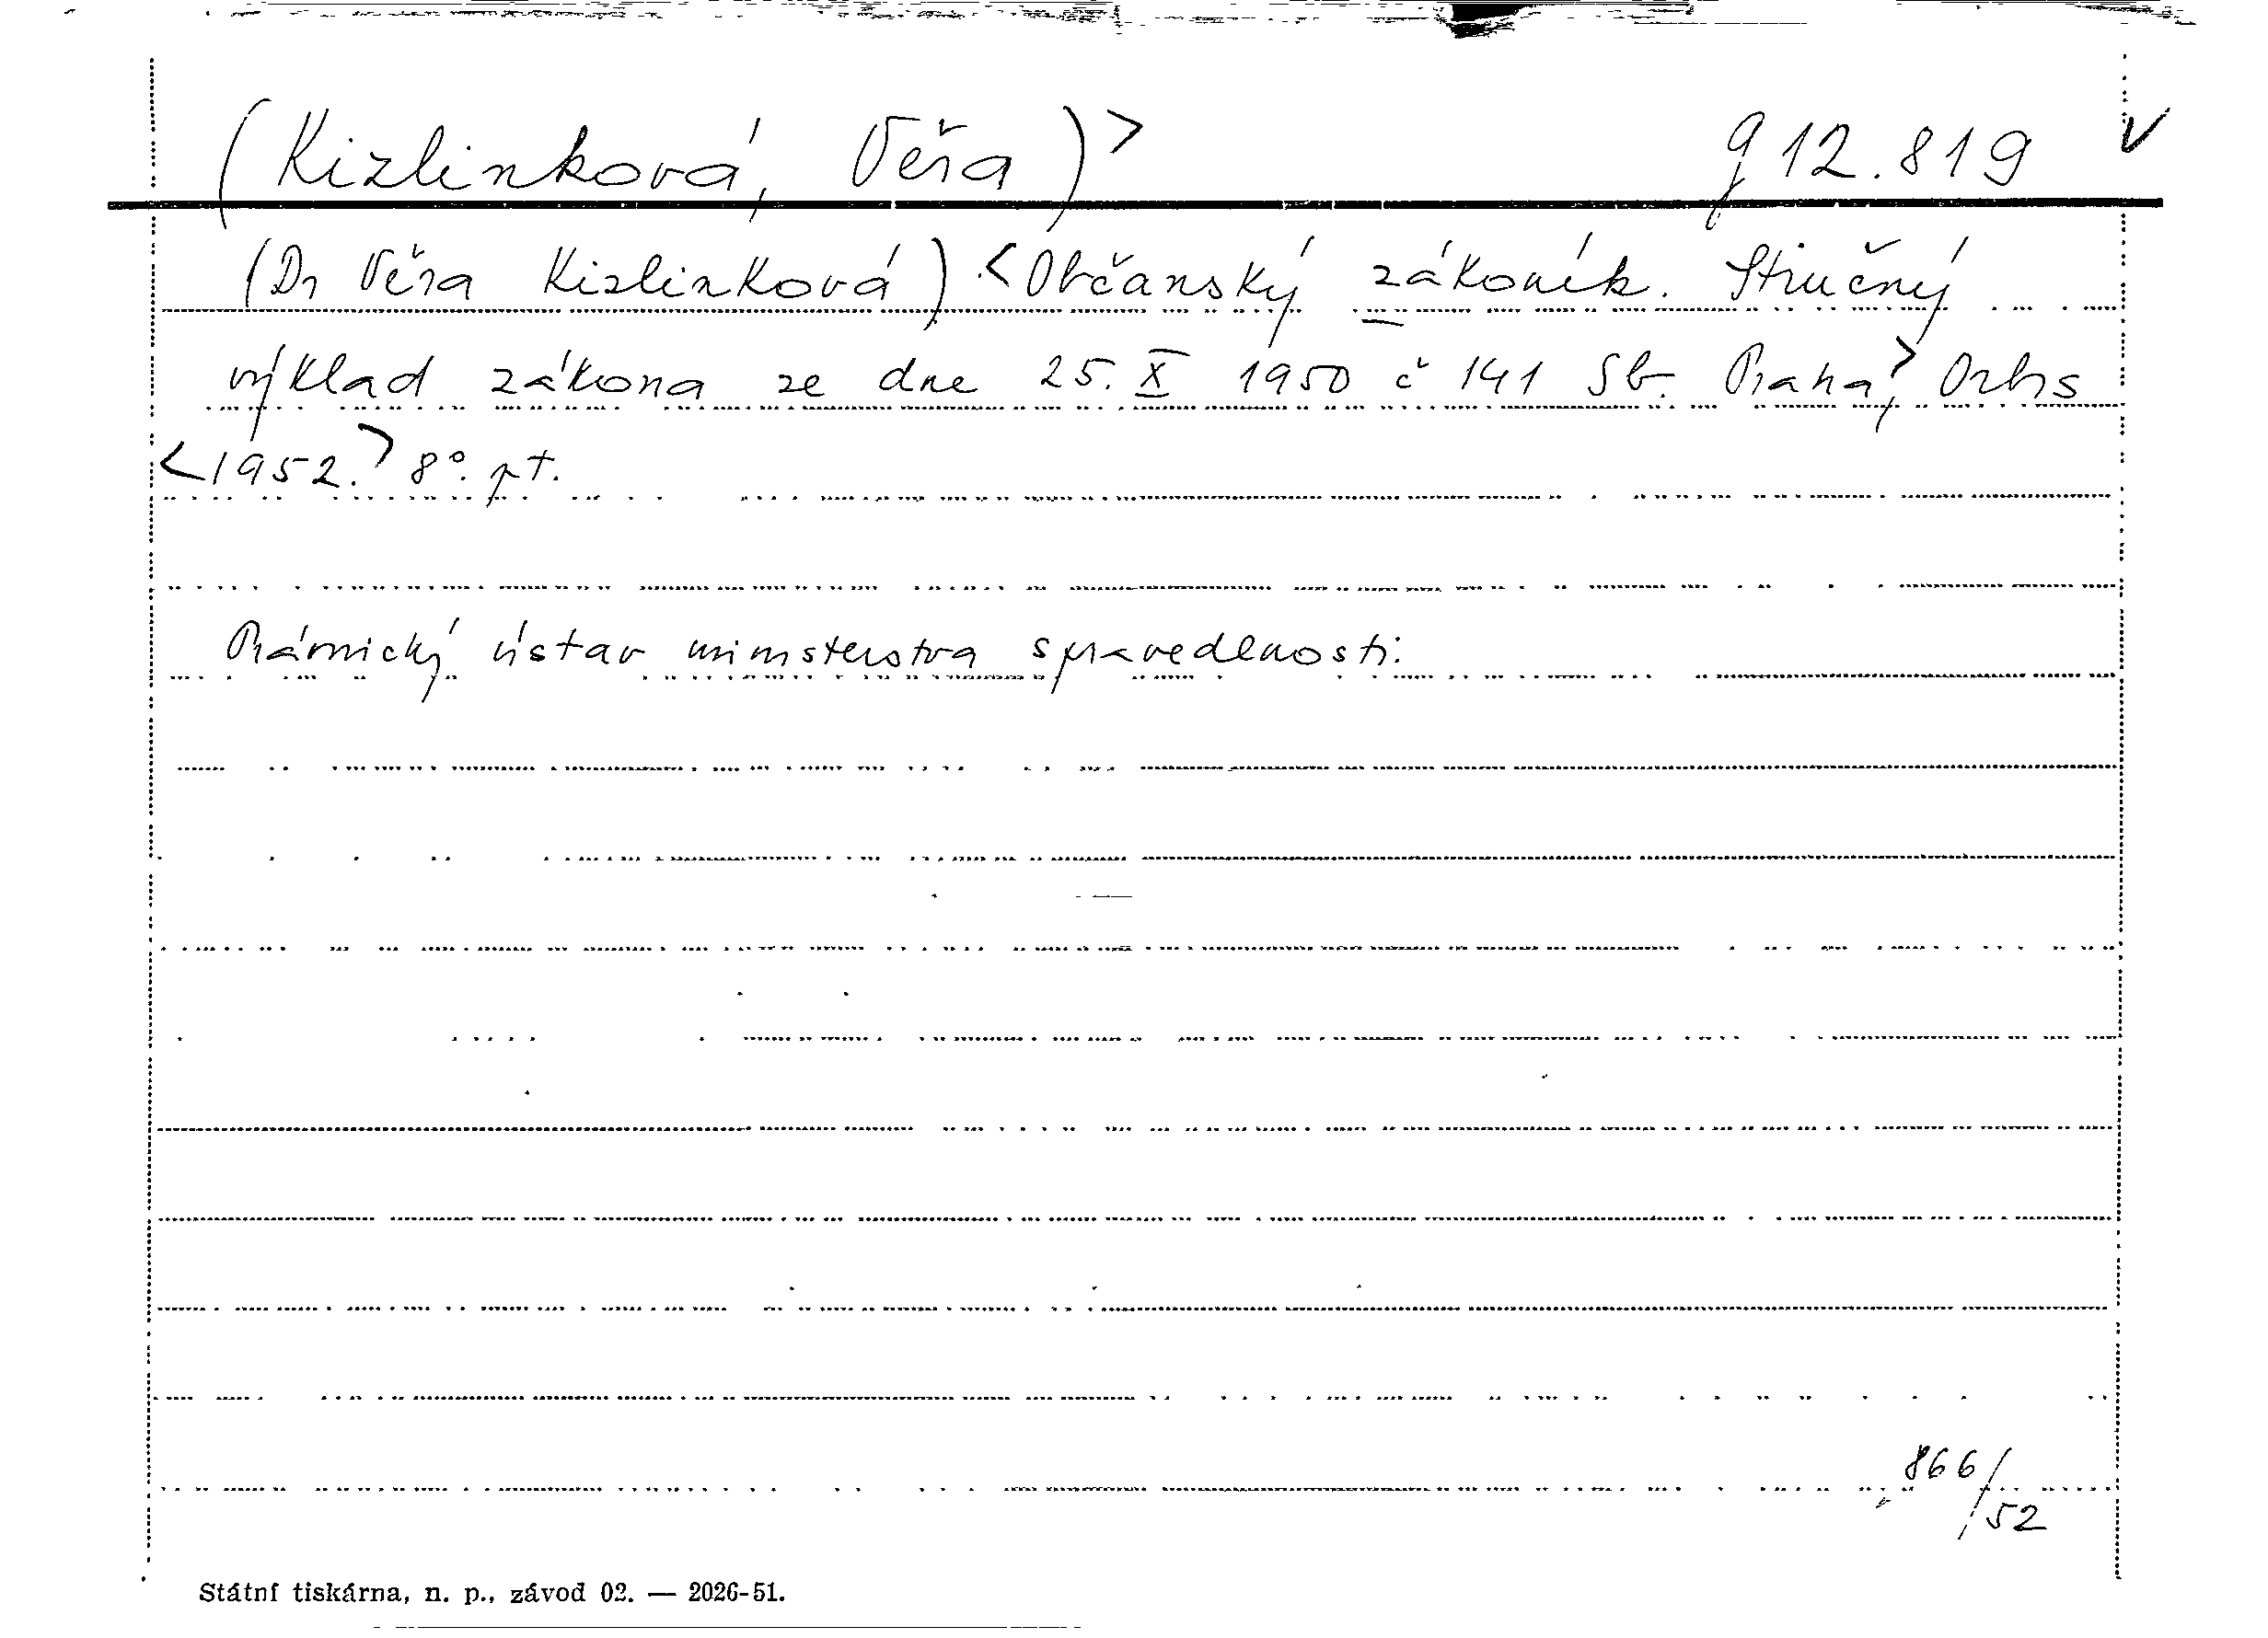 (Kizlinková, Věra)> g 12.819 v
(Dr Věra Kizlinková) <Občanský zákoník. Stručný
výklad zákona ze dne 25. X 1950 č 141 Sb. Praha,> Orbis
<1952.> 8°. pt.
Právnický ústav ministerstva spravedlnosti.
866/52
Státní tiskárna, n. p., závod 02. — 2026-51.